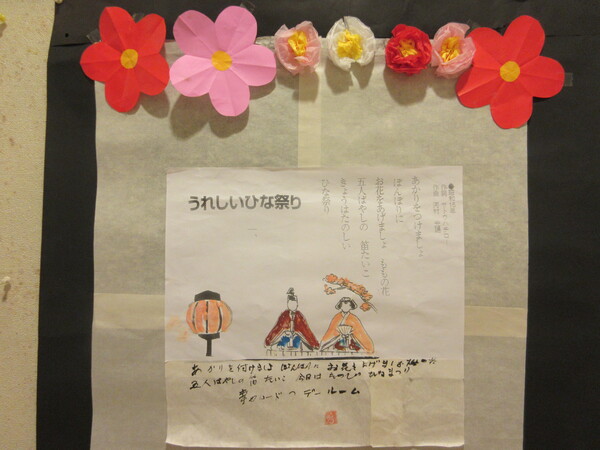 うれしいひな祭り
あかりをつけましょ
ぼんぼりに
お花をあげましょ ももの花
五人ばやしの 笛たいこ
きょうはたのしい
ひな祭り
あかりを付けましょ ぼんぼりに お花を上げましょ
五人ばやし 笛 たいこ 今日は たのしい ひなまつり
デールーム